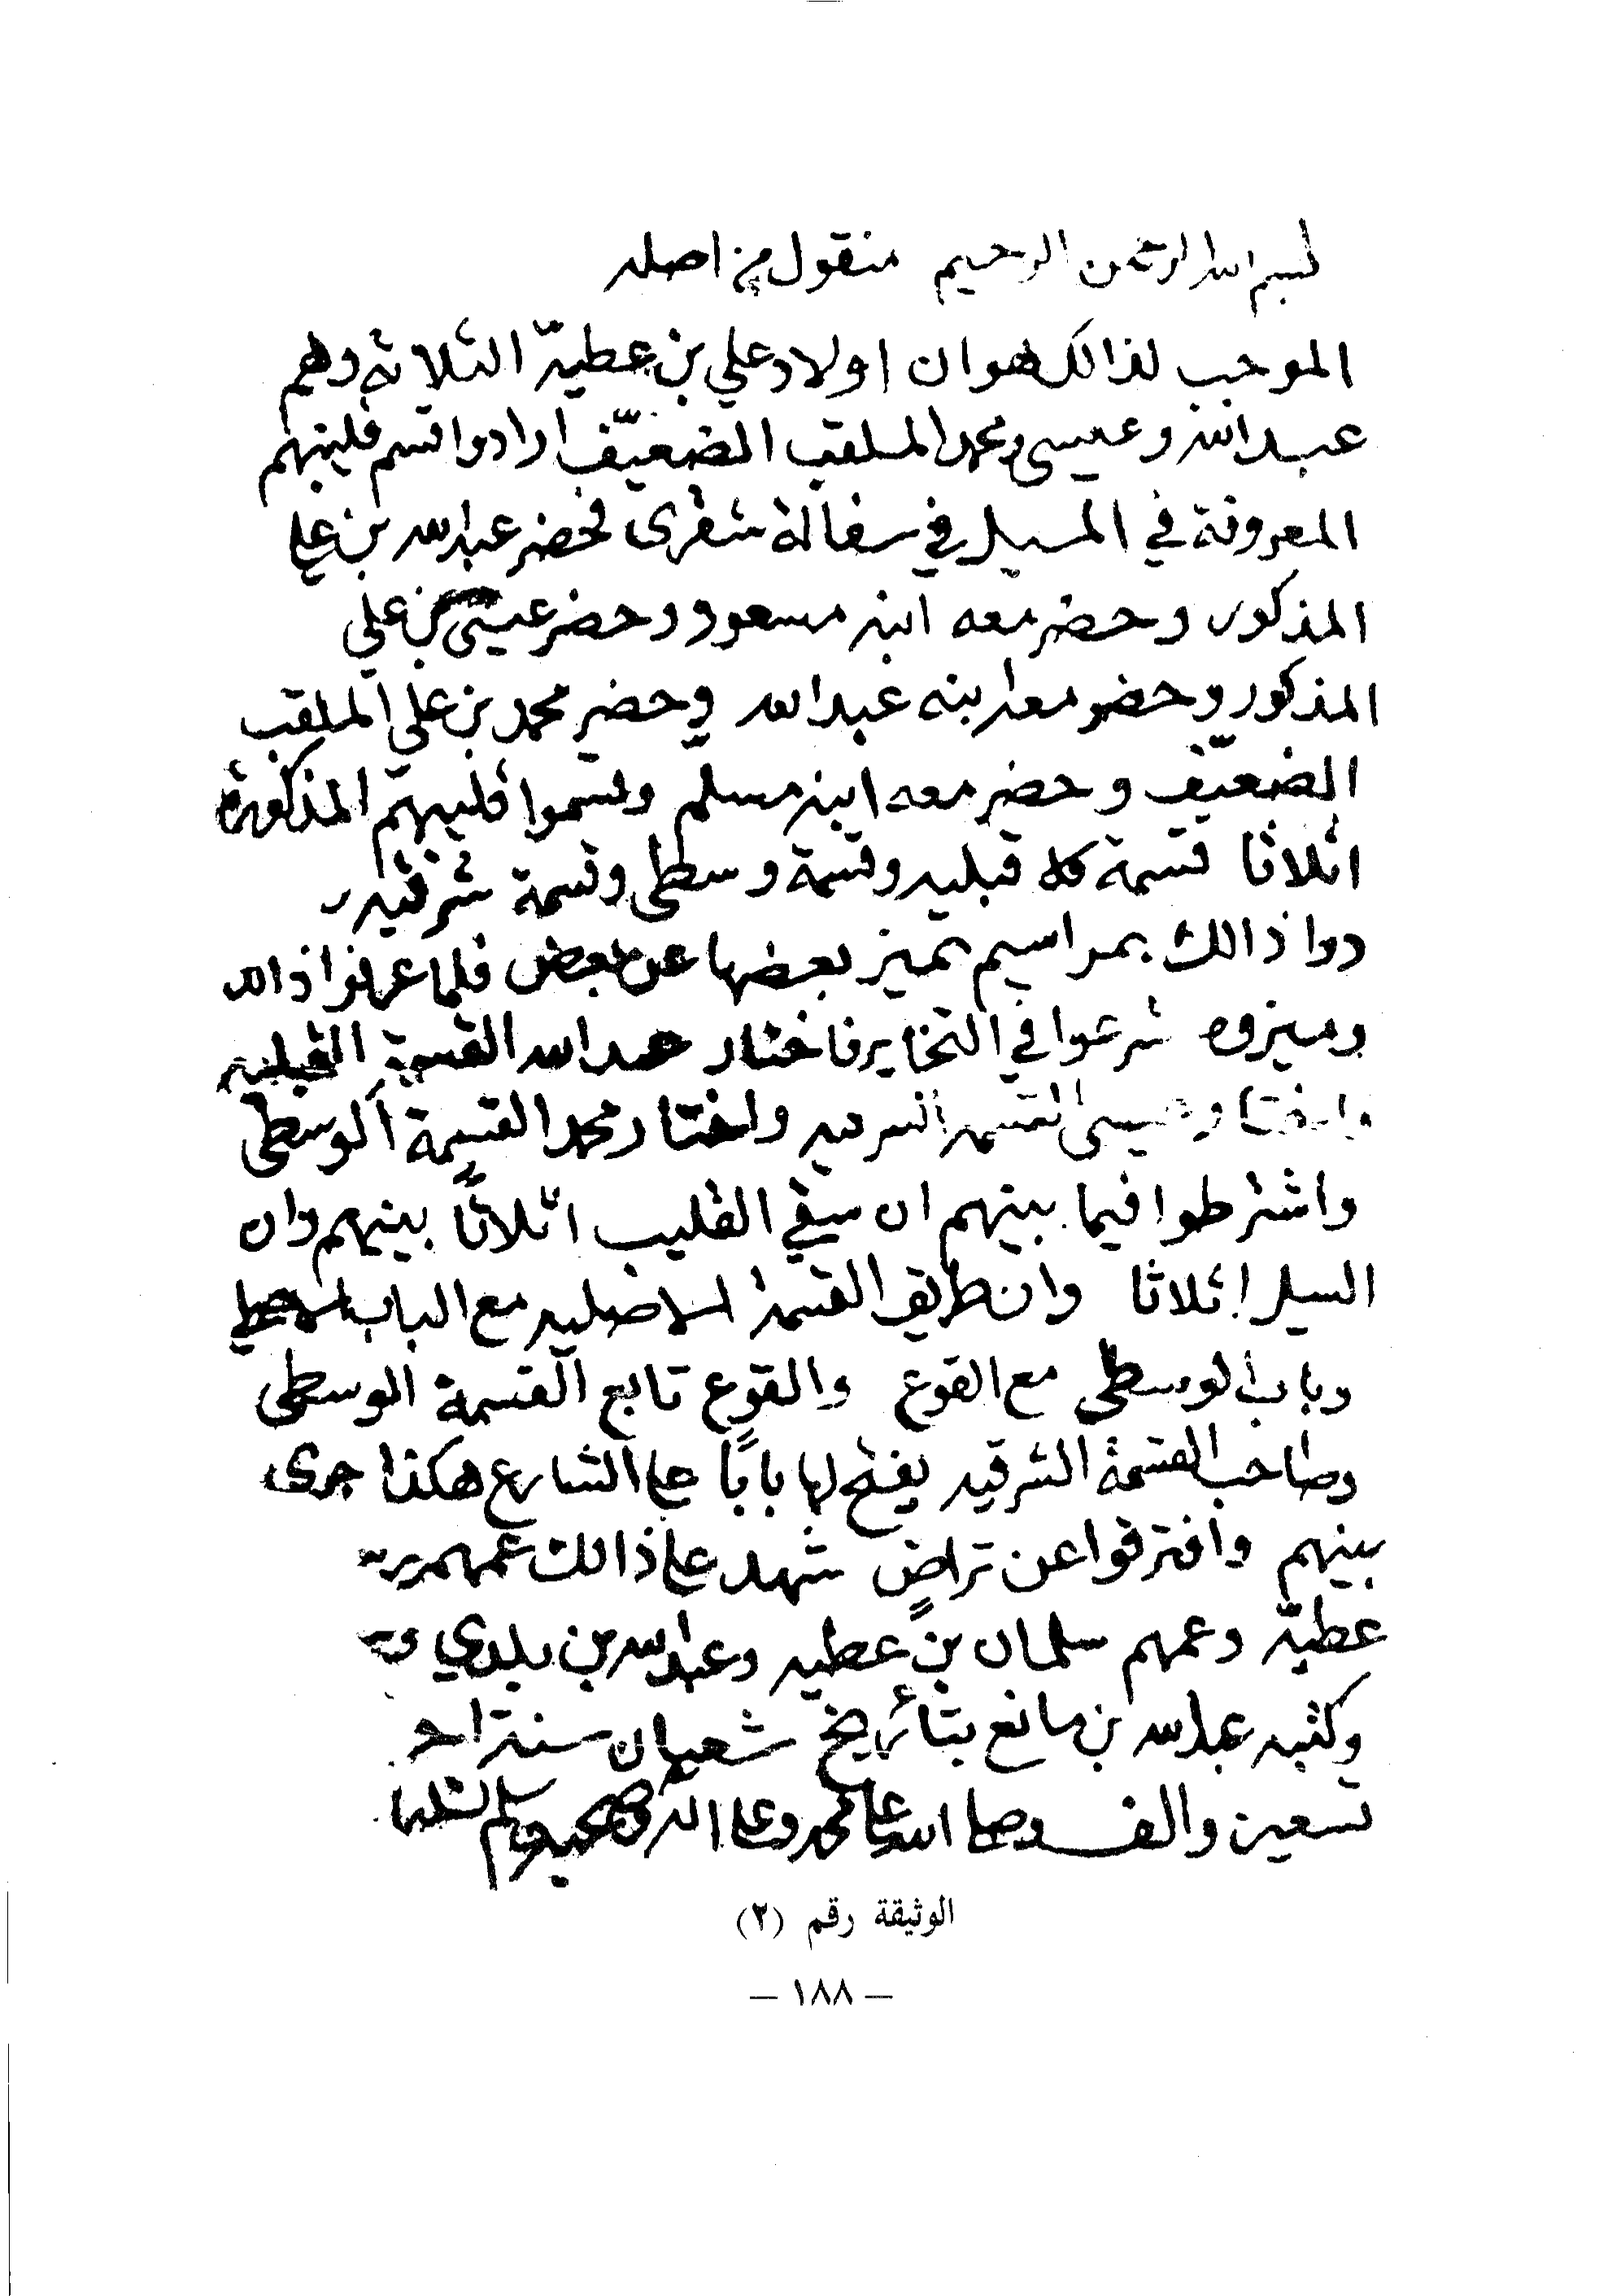 بسم الله الرحمن الرحيم منقول من اصله
الموجب لذالك هو ان اولاد علي بن عطيّه الثلاثه وهم
عبد الله وعيسى ومحمد الملقب الضعيّف ارادوا قسم قليبهم
المعروفة في المسيل في سفالة شقرى فحضر عبد الله بن علي
المذكور وحضر معه ابنه مسعود وحضر عيسى بن علي
المذكور وحضر معه ابنه عبد الله وحضر محمد بن علي الملقب
الضعيّف وحضر معه ابنه مسلم وقسموا قليبهم المذكورة
اثلاثا قسمة قبليه وقسمة وسطى وقسمة شرقيه
دوا ذالك بمراسيم تميز بعضها عن بعض فلما عرفوا ذالك
وميزوه شرعوا في التخاير فاختار عبد الله القسمة القبليه
واختار عيسى القسمه الشرقيه واختار محمد القسمة الوسطى
واشترطوا فيما بينهم ان سقي القليب اثلاثًا بينهم وان
السيل اثلاثا وان طريق القسمة مع الباب
وباب الوسطى مع القوع والقوع تابع القسمة الوسطى
وصاحب القسمة الشرقيه يفتح لها بابًا على الشارع هكذا جرى
بينهم وافترقوا عن تراضٍ شهد على ذالك عمهم
عطيّه وعمهم سلمان بن عطيه وعبد الله بن بلدي
وكتبه عبد الله بن مانع بتأريخ شعبان سنة احد
تسعين والف وصلى الله على محمد وعلى اله وصحبه وسلم
الوثيقة رقم (٢)
– ١٨٨ –